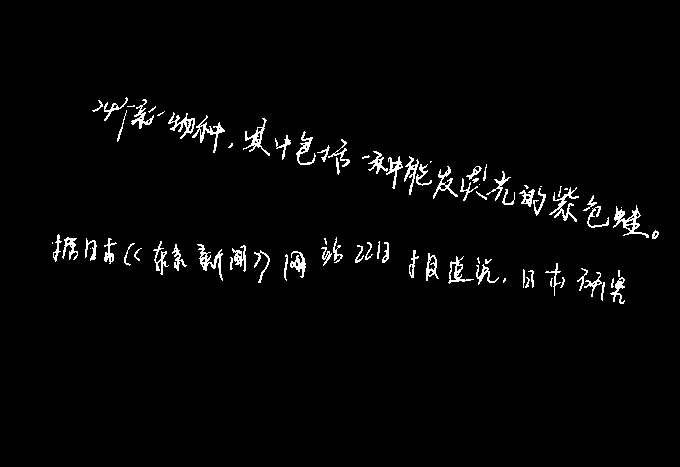 24个新物种,其中包括一种能发荧光的紫色蛙。
据日本《东京新闻》网站22日报道说,日本研究